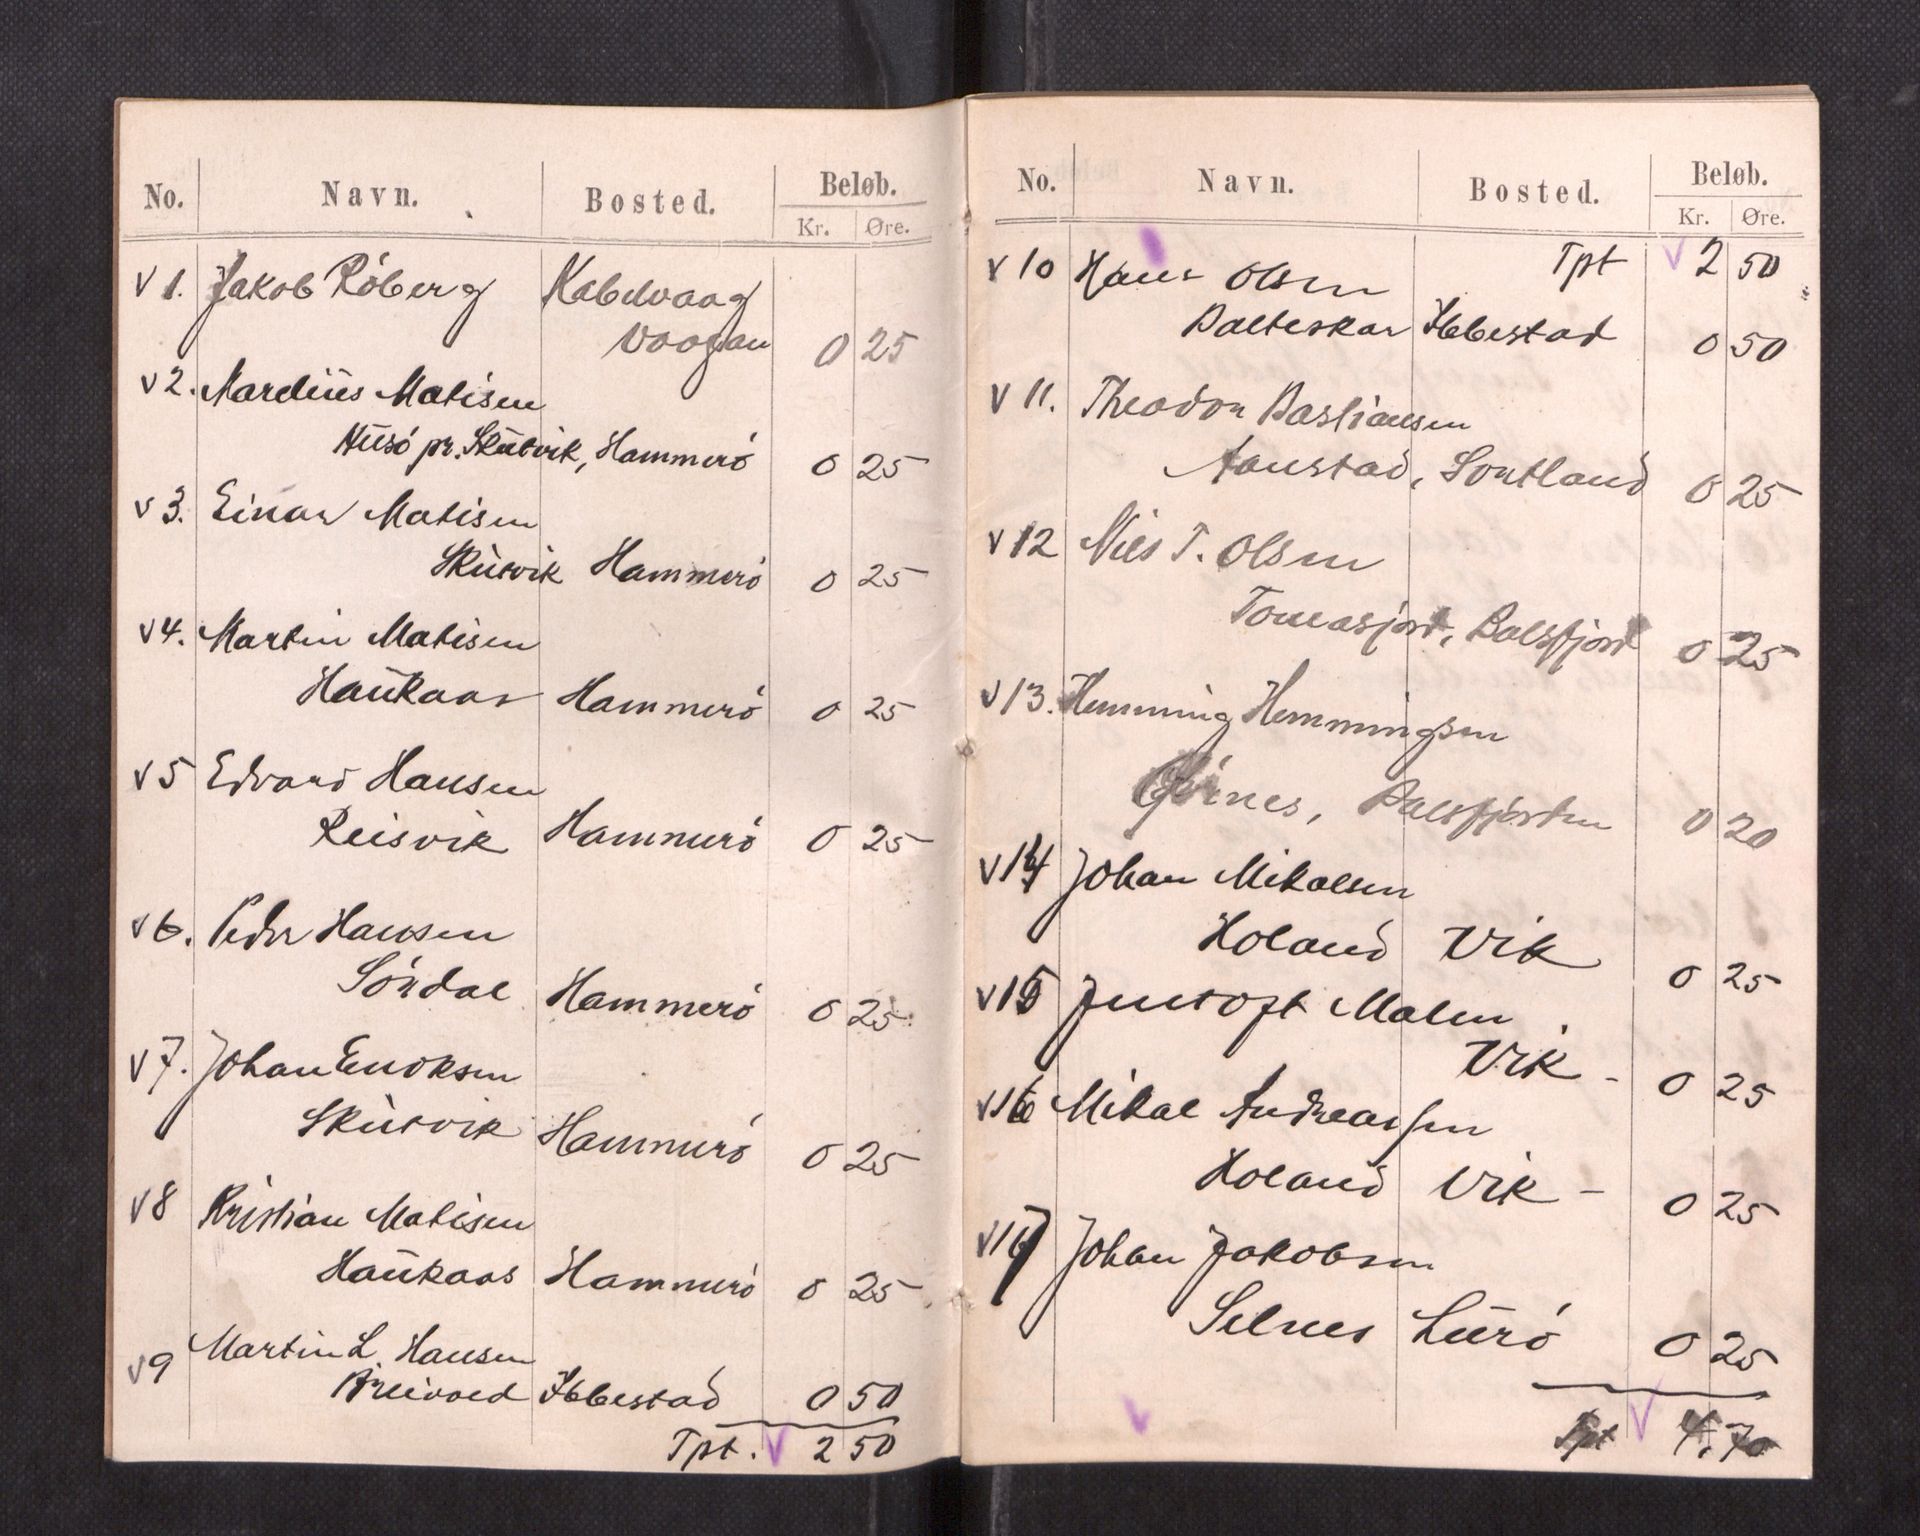 No. Navn. Bosted. Beløb.
Kr. Øre.
V 1. Jakob Röberg Kabelvaag
Vaagan 0 25
V 2. Mardiüs Matisen
Hüsö pr. Skütvik, Hammerö 0 25
V 3. Einar Matisen
Skütvik Hammerö 0 25
V 4. Martin Matisen
Haükaas Hammerö 0 25
V 5 Edvard Hansen
Reisvik Hammerö 0 25
V 6. Peder Hansen
Sördal Hammerö 0 25
V 7. Johan Enoksen
Skütvik Hammerö 0 25
V 8 Kristian Matisen
Haükaas Hammerö 0 25
V 9 Martin L. Hansen
Breivold Ibbestad 0 50
Tpt. V 2 50
No. Navn. Bosted. Beløb.
Kr. Øre.
Tpt V 2 50
V 10 Hans Olsen
Balteskar Ibbestad 0 50
V 11. Theodor Bastiansen
Aanstad, Sortland 0 25
V 12 Nils T. Olsen
Tomasjord, Balsfjord 0 25
V 13. Hemming Hemmingsen
Balsfjorden 0 20
V 14 Johan Mikalsen
Holand Vik 0 25
V 15 Jentoft Malen
Vik - 0 25
V 16 Mikal Andreassen
Holand Vik - 0 25
V 17 Johan Jakobsen
Selnes Lürö 0 25
V Tpt V 4,70